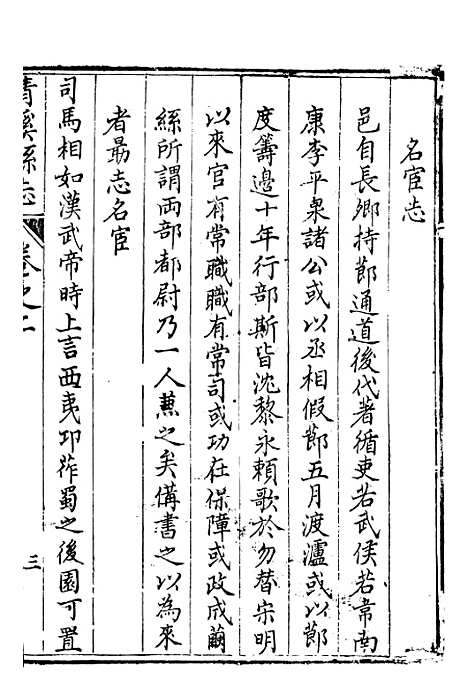 名宦志
邑自長卿持節通道後代著循吏若武侯若韋南
康李平泉諸公或以丞相假節五月渡瀘或以節
度籌邊十年行部斯皆沈黎永頼歌於勿替宋明
以來官有常職職有常司或功在保障或政成繭
絲所謂両部都尉乃一人蕪之矣備書之以為來
者最志名宦
司馬相如漢武帝時上言西夷卭莋蜀之後園可置
清溪縣志 卷之二 三